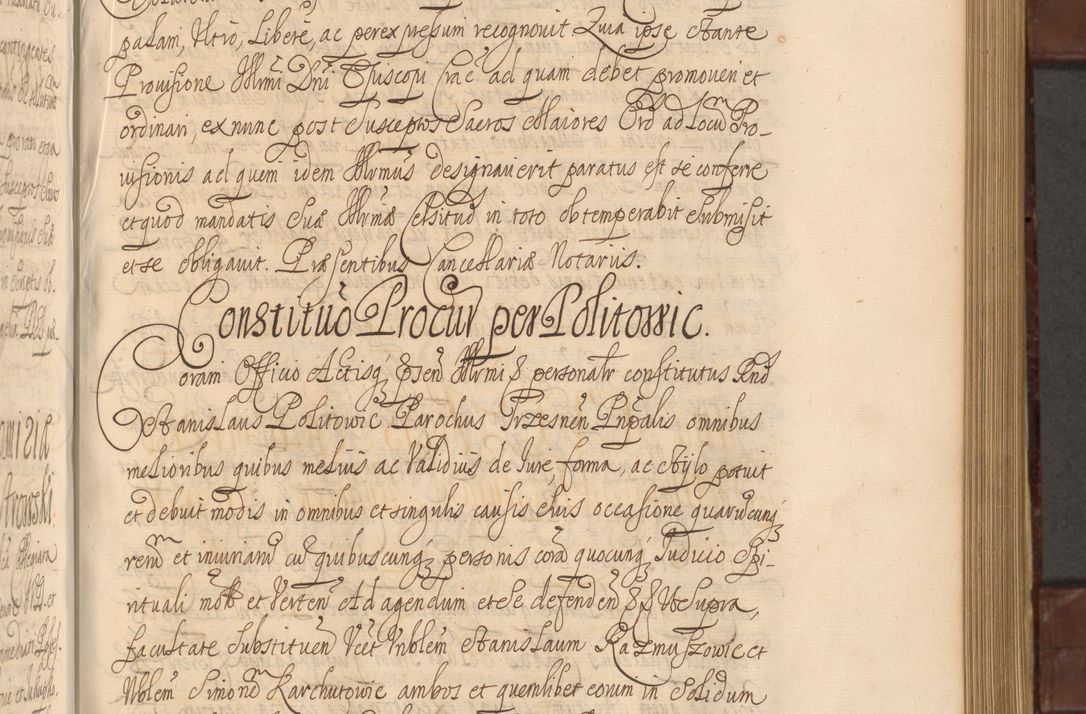 palam, Ultro, Libere, ac per expressum recognouit Quia ipse stante
Prouisione Illrmi Dni Episcopi frac ad quam debet promoueri et
ordinari, ex nunc post susceptos Sacros Maiores Ord ad Locu Pro-
uisionis ad quem idem Illrmus designauerit paratus est se conferre
et quod mandatis Suæ Illrmæ Celsitud in toto obtemperabit submisit
et se obligauit. Præsentibus Cancellariæ Notariis.
Constituo Procur per Politowic.
Coram Officio Actisq psen Illrmi & personalr constitutus Rnd
Stanislaus Politowic Parochus Przesnen Prnpalis omnibus
melioribus quibus melius ac Validius de Iure, forma, ac stylo potuit
et debuit modis in omnibus et singulis causis eius occasione quarucunq
reru et iniuriaru cu quibuscunq personis cora quocunq Iudicio Spi-
rituali mot et Verten Ad agendum et se defenden && Ut Supra,
facultate substituen Vcet Nblem Stanislaum Kazmuszowic et
Nblem Simone Karchutowic ambos et quemlibet eorum in Solidum